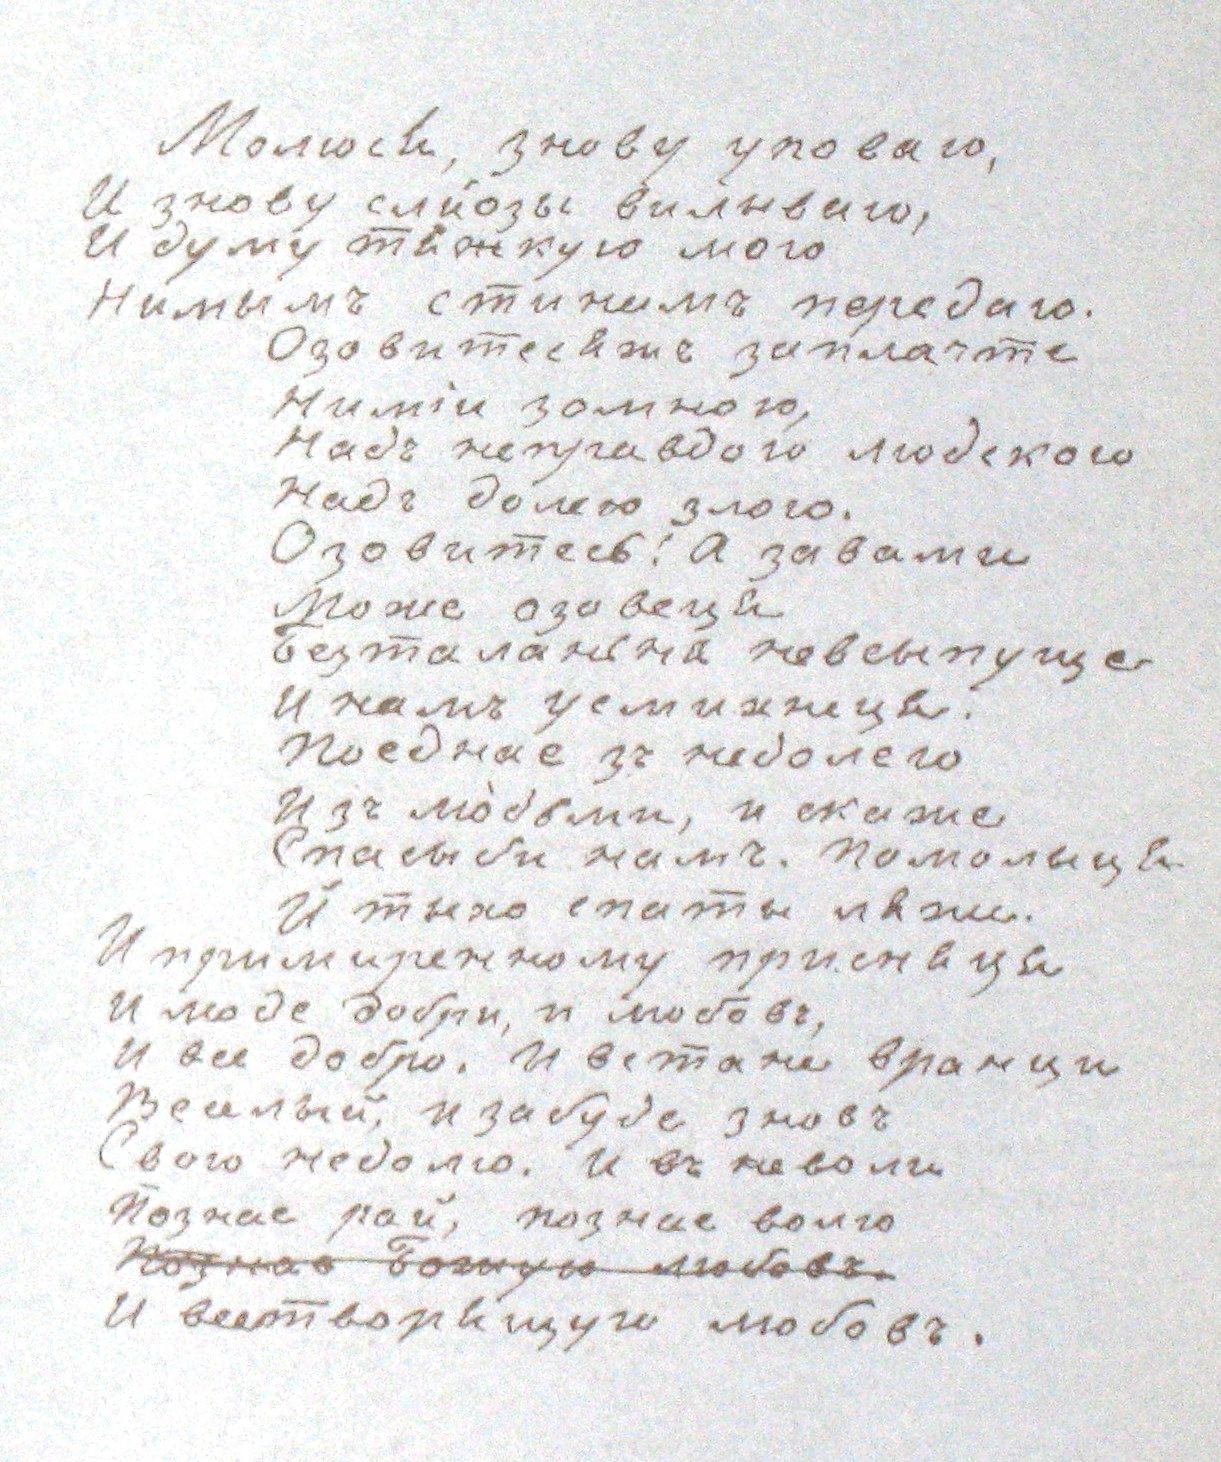 Молюся, знову уповаю,
И знову слйозы виливаю,
И думу тяжкую мою
Нимымъ стинамъ передаю.
Озовитесяже заплачте
Нимiи зомною,
Надъ неправдою людскою
Надъ долею злою.
Озовитесь! А завами
Може озовеця
Безталаньня невсыпуще
И намъ усмихнеця.
Поєднає зъ недолею
Изъ людьми, и скаже
Спасыби намъ. Помолыця
Й тыхо спаты ляже.
И примиренному присняця
И люде добри, и любовъ,
И все добро. И встане вранци
Веселый, и забуде зновъ
Свою недолю. И въ неволи
Познає рай, познає волю
Познає Божую любовъ.
И всетворящую любовъ.